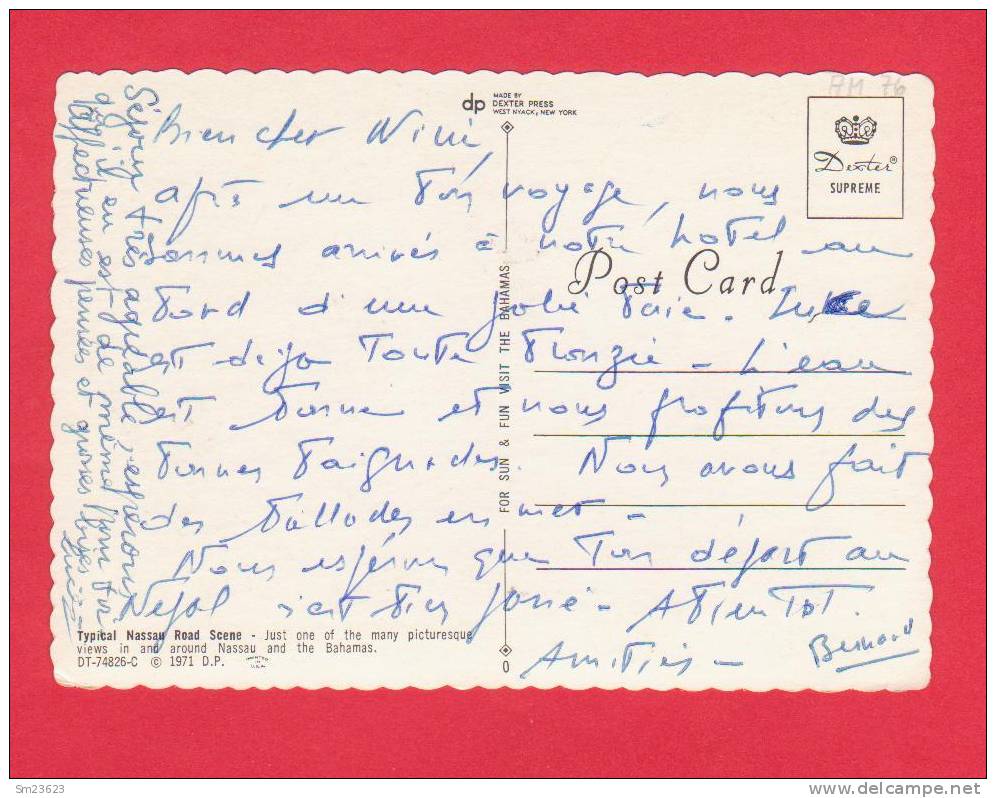 AM 76
dp MADE BY
DEXTER PRESS
WEST NYACK, NEW YORK
Dexter®
SUPREME
Post Card
FOR SUN & FUN VISIT THE BAHAMAS
Bien cher Nini,
après un bon voyage, nous
sommes arrivés à notre hotel au
bord d'une jolie baie.
est déjà toute bronzée - L'eau
est bonne et nous profitons des
bonnes baignades. Nous avons fait
des ballades en mer -
Nous espérons que ton départ au
Népal s'est bien passé - A Bientôt.
Amitiés -
Bernard
Séjour très agréable, espérons
qu'il en est de même pour toi
affectueuses pensées et grosses bises
Typical Nassau Road Scene - Just one of the many picturesque
views in and around Nassau and the Bahamas.
DT-74826-C © 1971 D.P.
PRINTED IN U.S.A.
0
Sm23623
www.delcampe.net